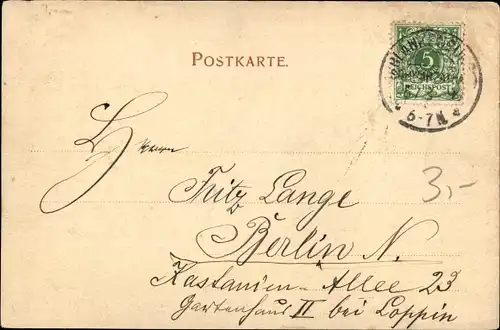 POSTKARTE.
5
REICHSPOST
6-7N.
Herrn
Fritz Lange
3,-
Berlin N.
Kastanien-Allee 23
Gartenhaus II bei Loppin